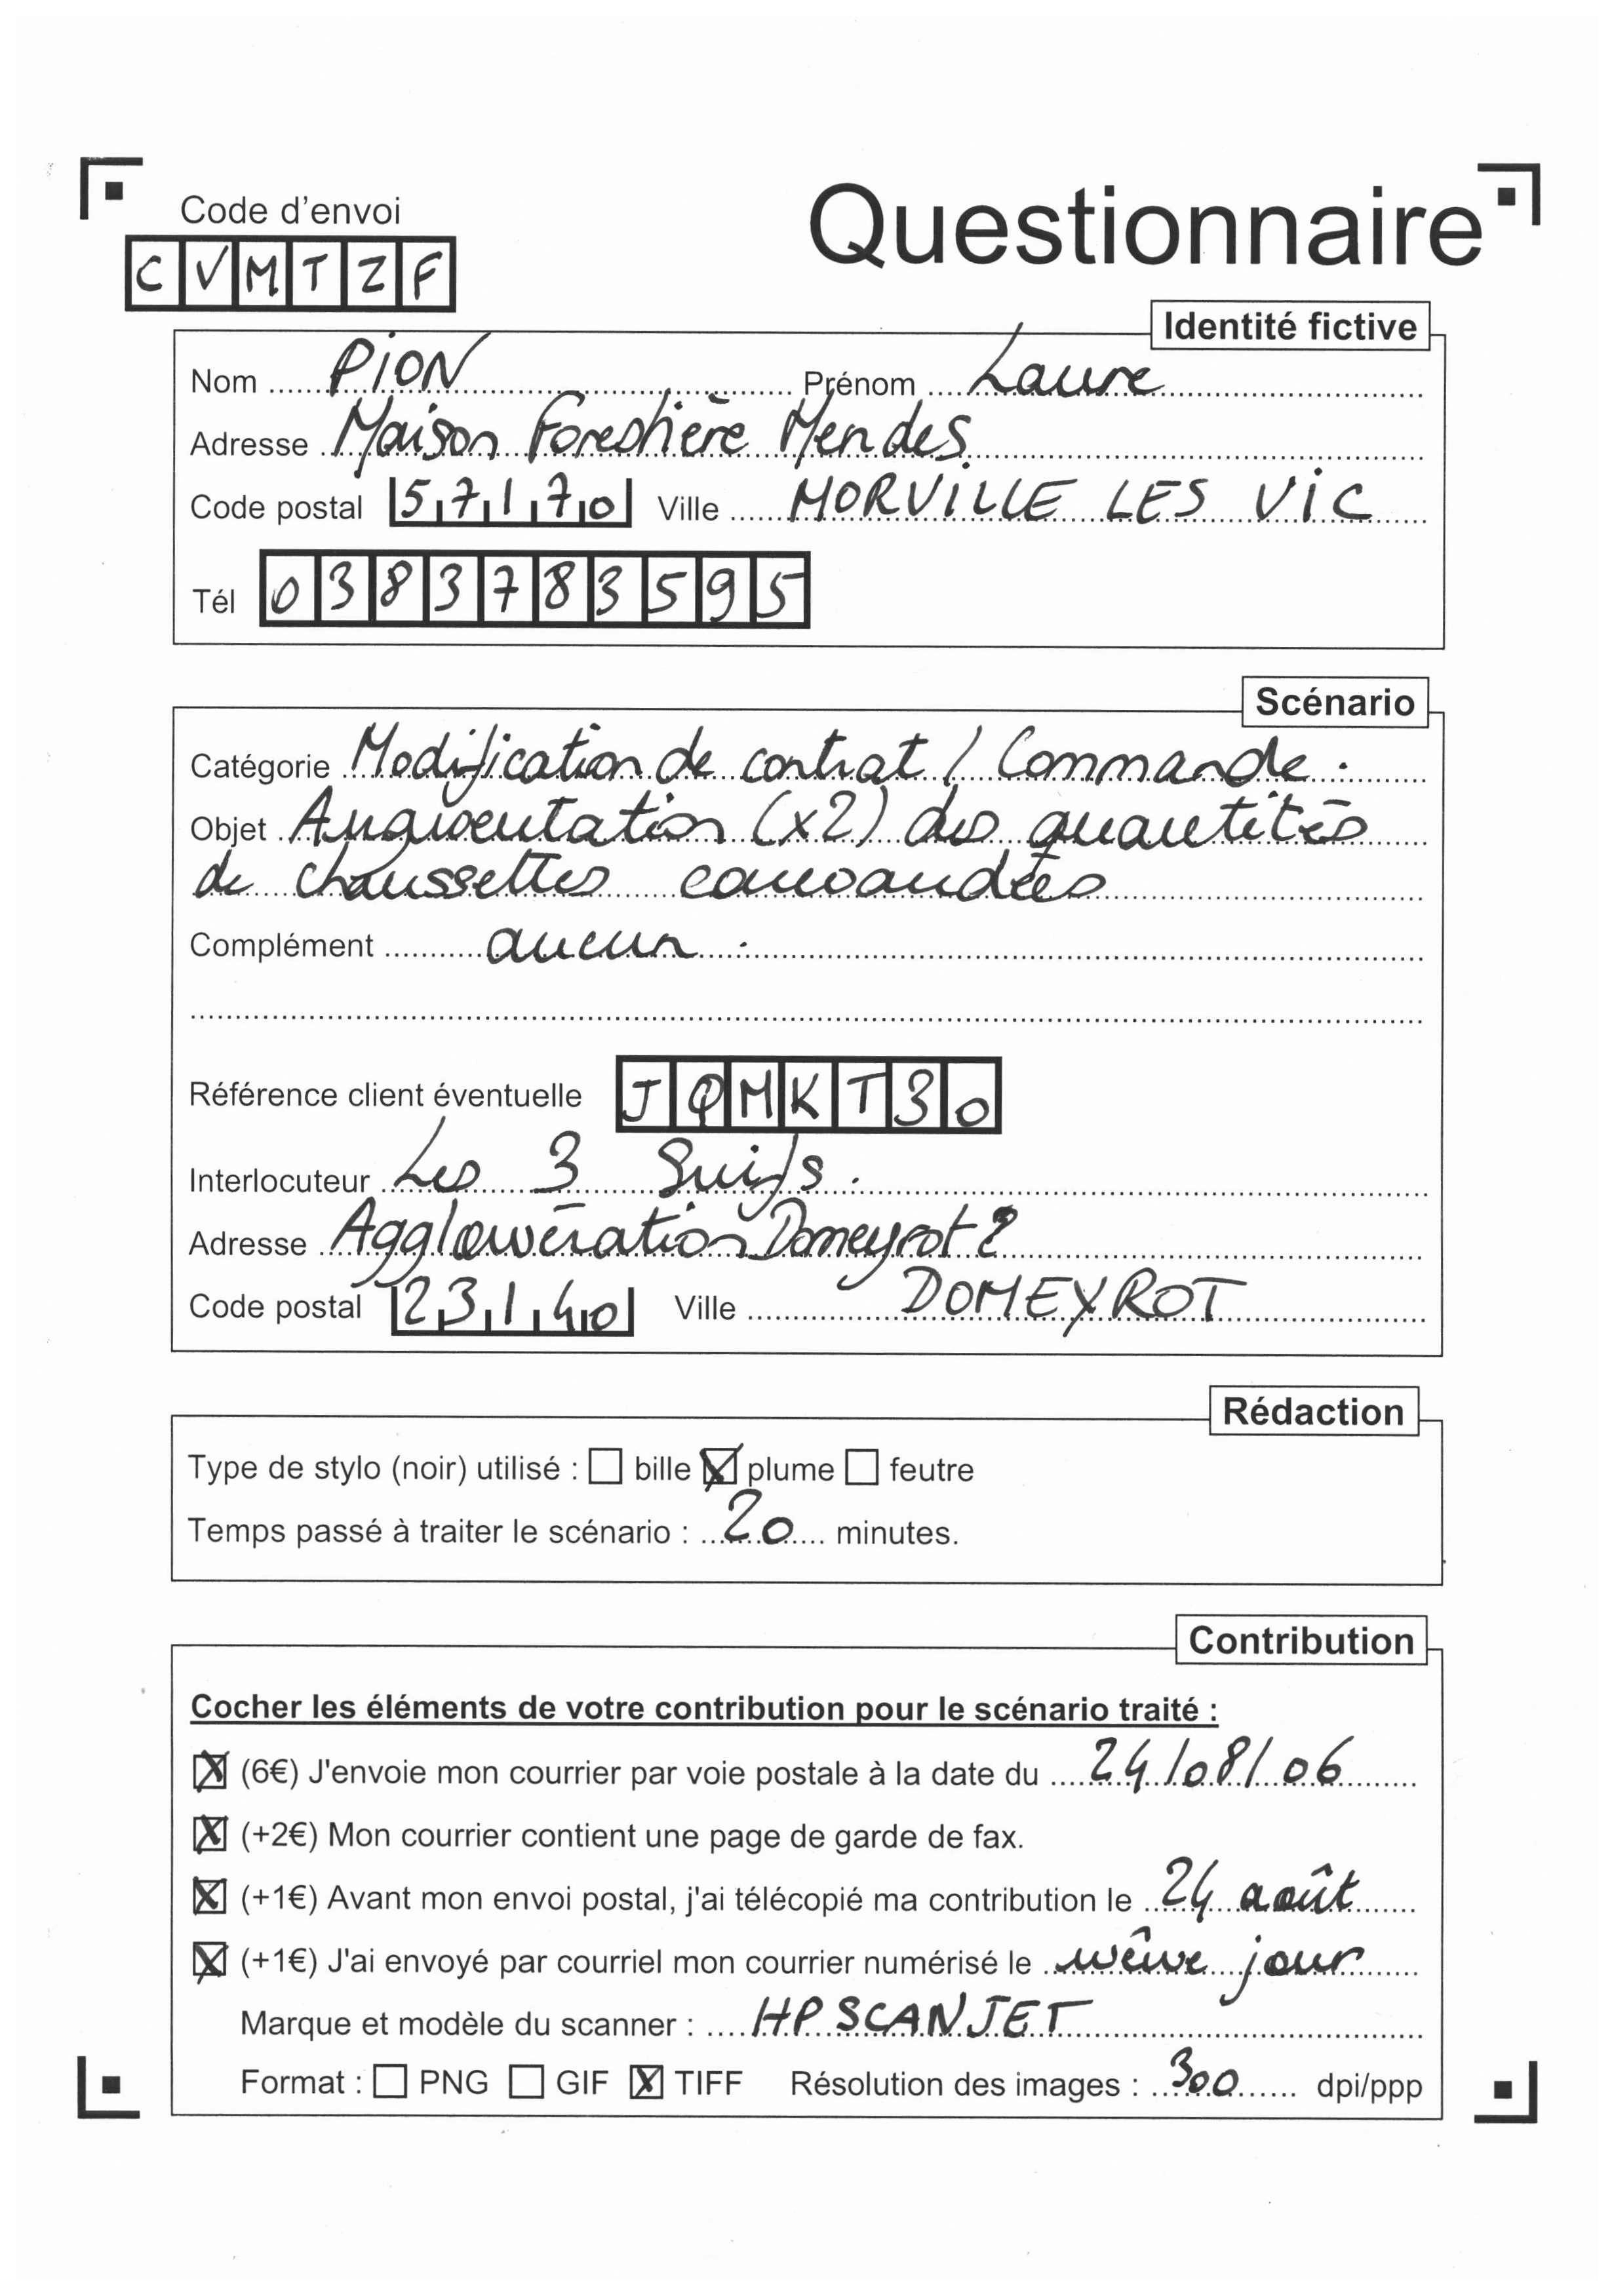 Code d'envoi
Questionnaire
C V M T Z F
Identité fictive
Nom PION Prénom Laure
Adresse Maison Forestière Mendes
Code postal 57170 Ville MORVILLE LES VIC
Tél 0383783595
Scénario
Catégorie Modification de contrat / Commande.
Objet Augmentation (x2) des quantités
de chaussettes commandées
Complément aucun.
Référence client éventuelle JQMKT30
Interlocuteur Les 3 Suifs.
Adresse Agglomération Domeyrot 2
Code postal 23140 Ville DOMEYROT
Rédaction
Type de stylo (noir) utilisé : ☐ bille ☒ plume ☐ feutre
Temps passé à traiter le scénario : 20 minutes.
Contribution
Cocher les éléments de votre contribution pour le scénario traité :
☒ (6€) J'envoie mon courrier par voie postale à la date du 24/08/06
☒ (+2€) Mon courrier contient une page de garde de fax.
☒ (+1€) Avant mon envoi postal, j'ai télécopié ma contribution le 24 août
☒ (+1€) J'ai envoyé par courriel mon courrier numérisé le même jour
Marque et modèle du scanner : HP SCANJET
Format : ☐ PNG ☐ GIF ☒ TIFF Résolution des images : 300 dpi/ppp